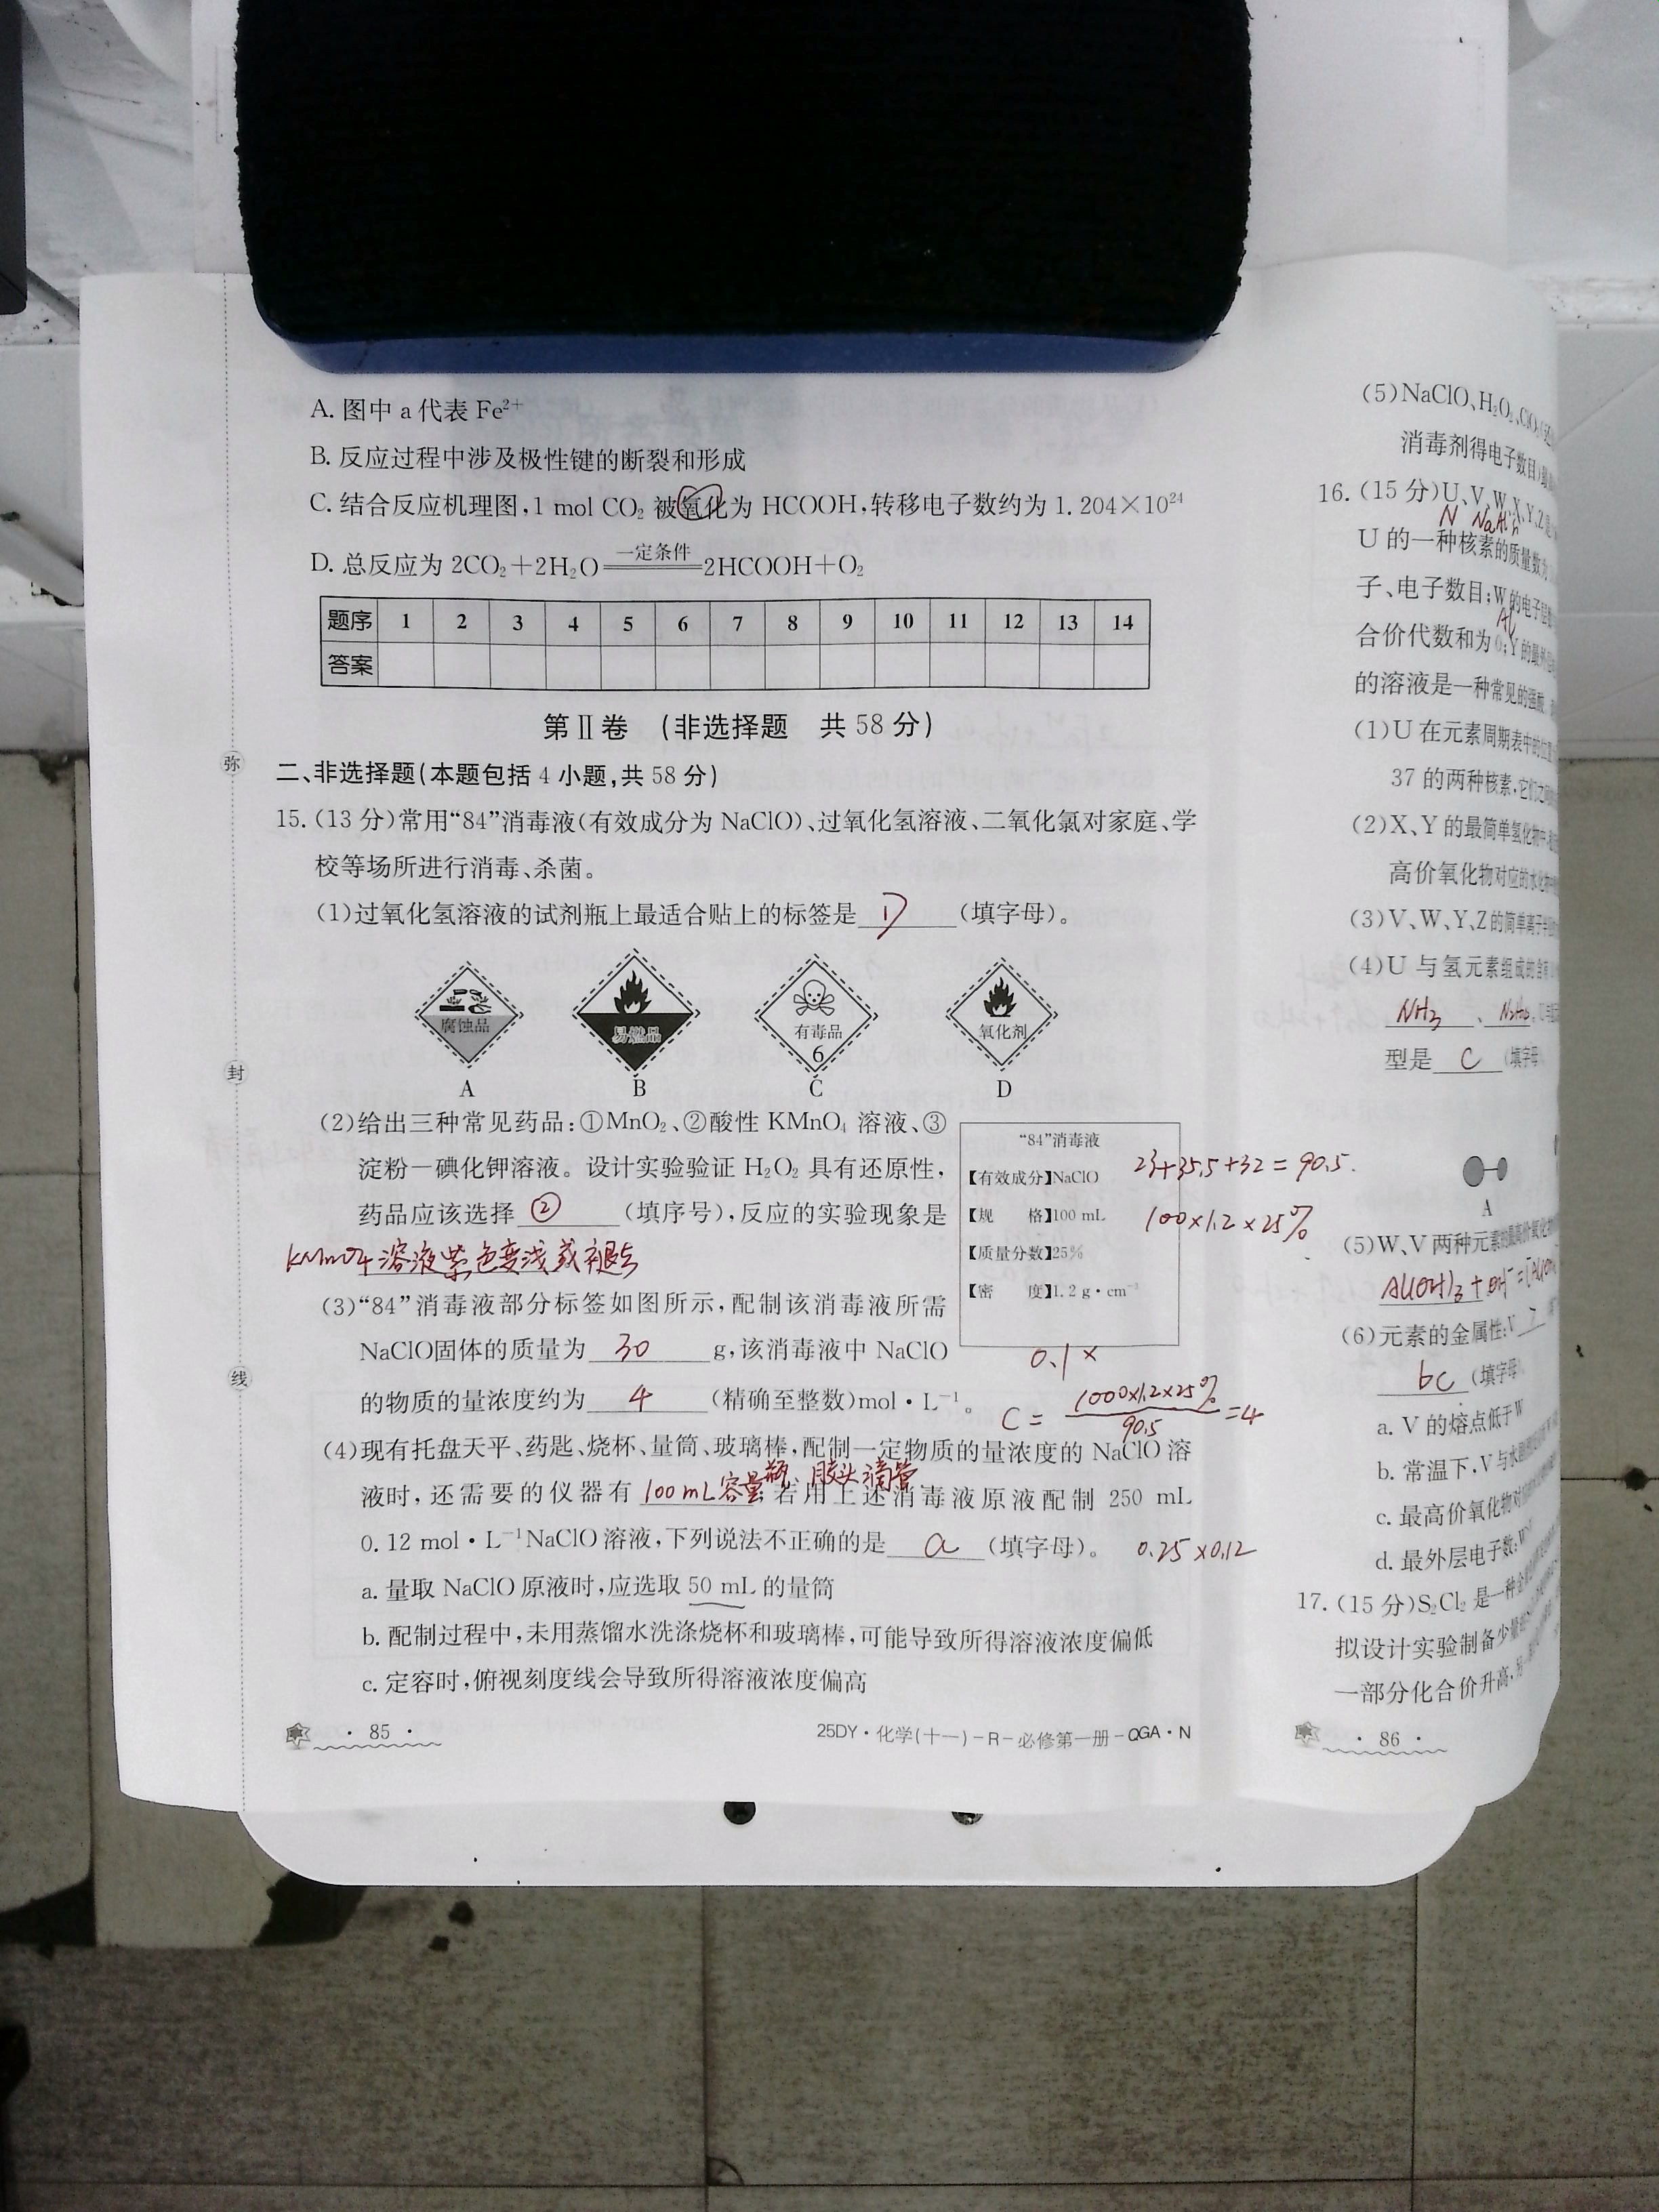 A. 图中 a 代表 Fe²⁺
B. 反应过程中涉及极性键的断裂和形成
C. 结合反应机理图,1 mol CO₂ 被氧化为 HCOOH,转移电子数约为 1.204×10²⁴
D. 总反应为 2CO₂+2H₂O 一定条件 ═══ 2HCOOH+O₂
题序 1 2 3 4 5 6 7 8 9 10 11 12 13 14
答案
第Ⅱ卷 (非选择题 共 58 分)
二、非选择题(本题包括 4 小题,共 58 分)
15.(13 分)常用“84”消毒液(有效成分为 NaClO)、过氧化氢溶液、二氧化氯对家庭、学
校等场所进行消毒、杀菌。
(1)过氧化氢溶液的试剂瓶上最适合贴上的标签是 D (填字母)。
腐蚀品 易燃品 有毒品 6 氧化剂
A B C D
(2)给出三种常见药品:①MnO₂、②酸性 KMnO₄ 溶液、③
淀粉—碘化钾溶液。设计实验验证 H₂O₂ 具有还原性,
药品应该选择 ② (填序号),反应的实验现象是
KMnO4溶液紫色变浅或褪去
“84”消毒液
【有效成分】NaClO
【规 格】100 mL
【质量分数】25%
【密 度】1.2 g·cm⁻³
23+35.5+32=90.5.
100×1.2×25%
(3)“84”消毒液部分标签如图所示,配制该消毒液所需
NaClO固体的质量为 30 g,该消毒液中 NaClO
的物质的量浓度约为 4 (精确至整数)mol·L⁻¹。
0.1×
C = 1000×1.2×25% / 90.5 =4
(4)现有托盘天平、药匙、烧杯、量筒、玻璃棒,配制一定物质的量浓度的 NaClO 溶
液时,还需要的仪器有 100mL容量瓶、胶头滴管;若用上述消毒液原液配制 250 mL
0.12 mol·L⁻¹NaClO 溶液,下列说法不正确的是 a (填字母)。 0.25×0.12
a. 量取 NaClO 原液时,应选取 50 mL 的量筒
b. 配制过程中,未用蒸馏水洗涤烧杯和玻璃棒,可能导致所得溶液浓度偏低
c. 定容时,俯视刻度线会导致所得溶液浓度偏高
· 85 ·
25DY·化学(十一)-R-必修第一册-QGA·N
弥
封
线
(5)NaClO、H₂O₂、ClO₂
消毒剂得电子数目)
16.(15 分)U、V、W、X、Y、Z
N Na Al
U 的一种核素的质量数为
子、电子数目;W 的电子
Al
合价代数和为 0;Y 的最外
的溶液是一种常见的强酸
(1)U 在元素周期表中的位置
37 的两种核素,它们之
(2)X、Y 的最简单氢化物中
高价氧化物对应的水化物
(3)V、W、Y、Z的简单离子半径
(4)U 与氢元素组成的
NH₃ 、 N₂H₄
型是 C (填字母
A
(5)W、V 两种元素的最高价氧化
Al(OH)₃+OH⁻=[Al(OH
(6)元素的金属性:V
bc (填字母
a. V 的熔点低于W
b. 常温下,V与水
c. 最高价氧化物对
d. 最外层电子数:W
17.(15 分)S₂Cl₂ 是一种
拟设计实验制备少量
一部分化合价升高,
· 86 ·